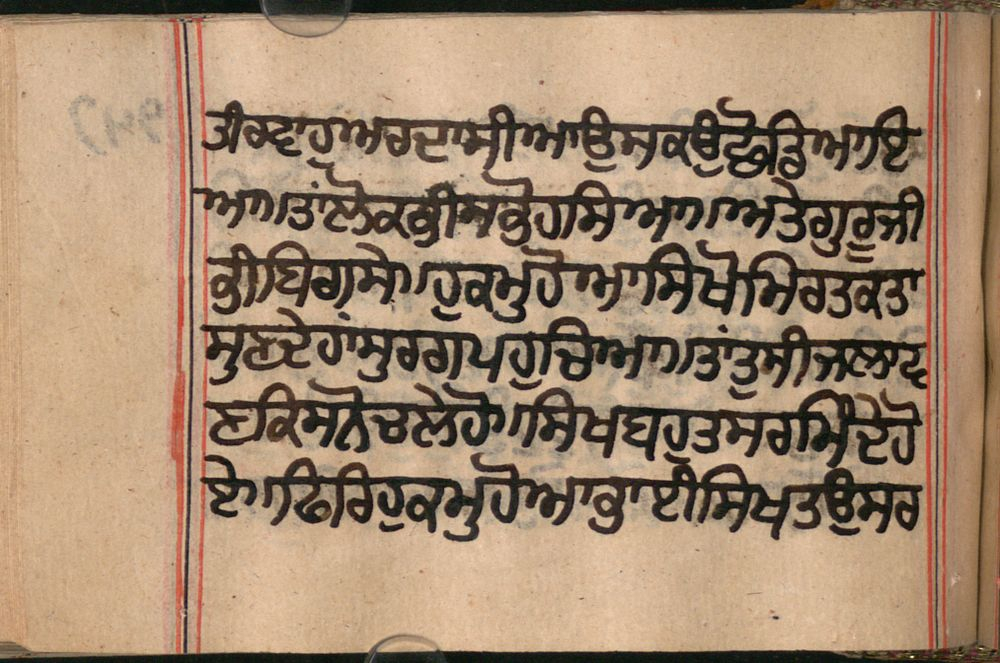 ਤੀਰਵਾਹੁਅਰਦਾਸੀਆਉਸਕਉਛੋਡਿਆਇ
ਆ॥ਤਾਂਲੋਕਭੀਸਭੋਹਸਿਆ॥ਅਤੇਗੁਰੂਜੀ
ਭੀਬਿਗਸੇ॥ਹੁਕਮੁਹੋਆਸਿਖੋਮਿਰਤਕਤਾ
ਸੁਣਦੇਹਾਂਸੁਰਗਪਹੁਚਿਆ॥ਤਾਂਤੁਸੀਜਲਾਵ
ਣਕਿਸਨੋਚਲੇਹੋ॥ਸਿਖਬਹੁਤਸਰਮਿੰਦੇਹੋ
ਏ॥ਫਿਰਿਹੁਕਮੁਹੋਆਭਾਈਸਿਖਤਉਸਰ